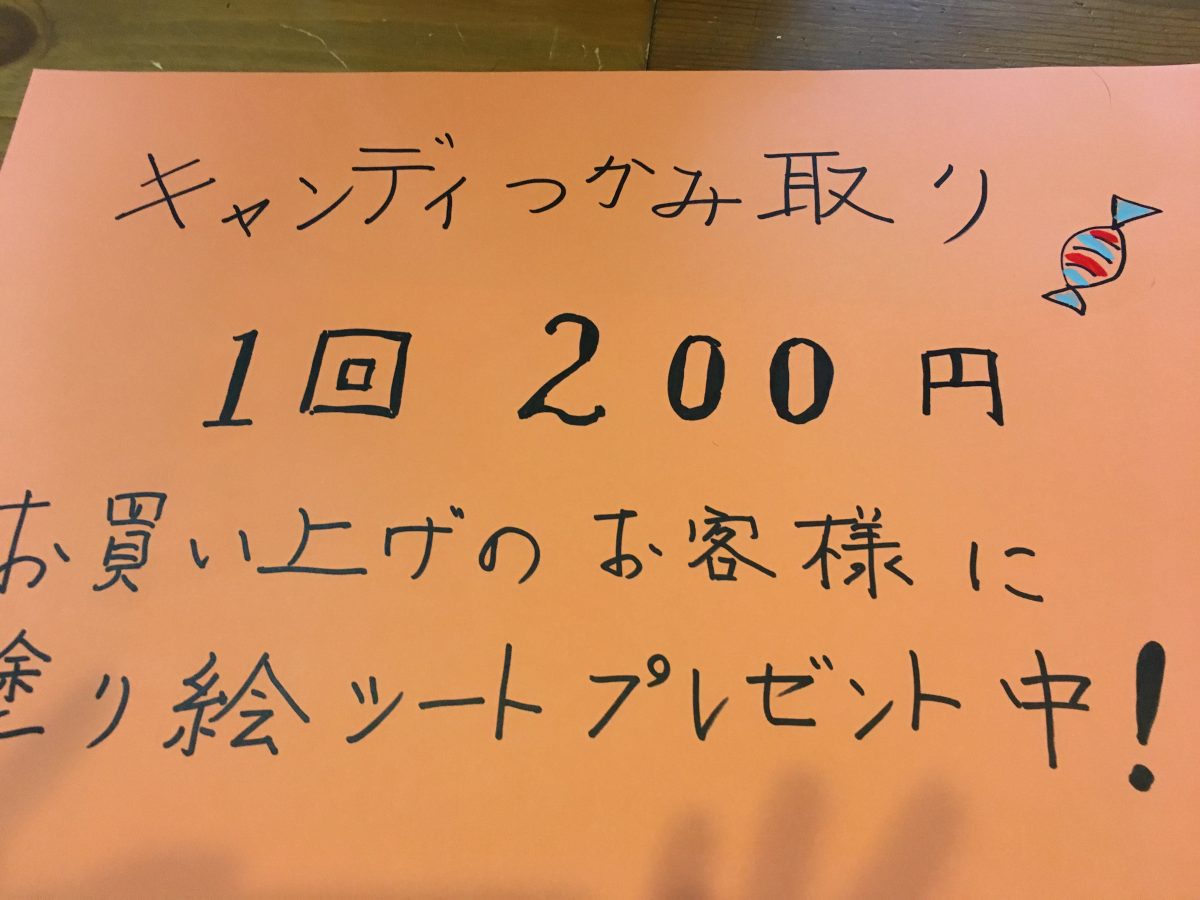 キャンディつかみ取り
1回 200円
お買い上げのお客様に
塗り絵シートプレゼント中!